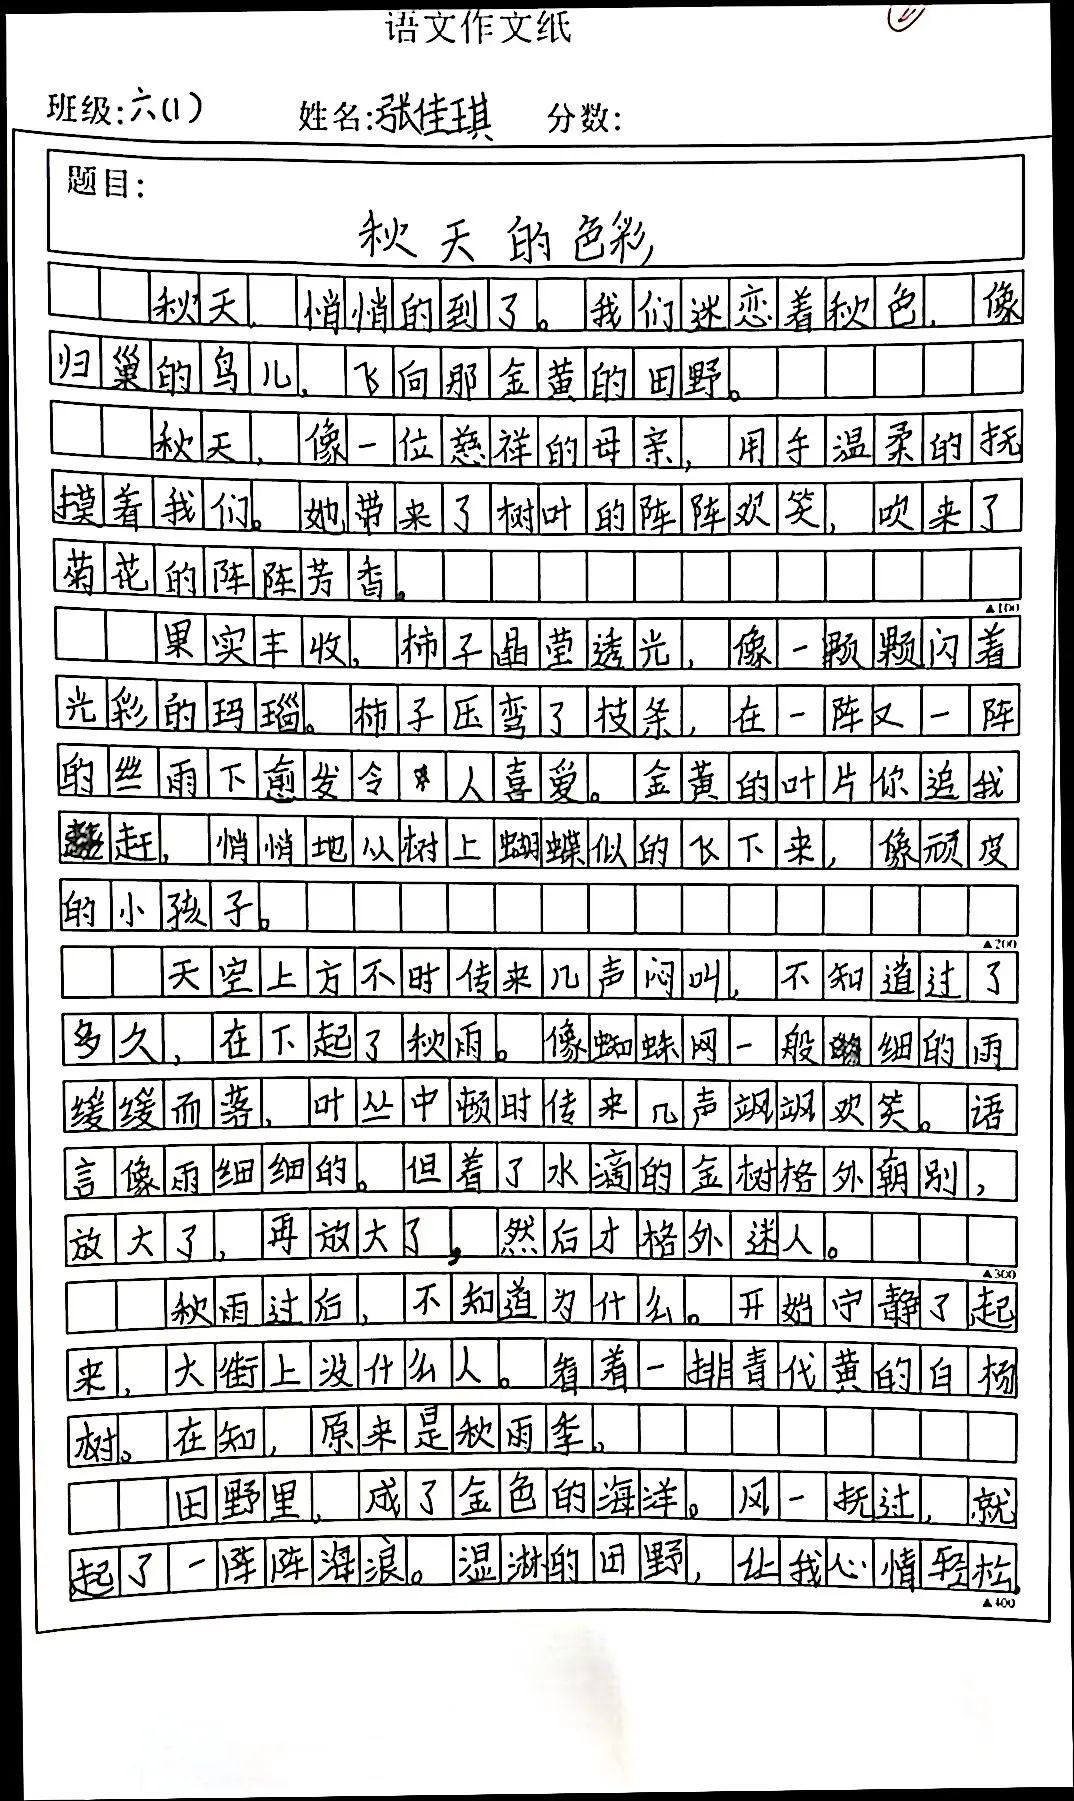 语文作文纸
班级:六(1) 姓名:张佳琪 分数:
题目:
秋天的色彩
秋天,悄悄的到了。我们迷恋着秋色,像
归巢的鸟儿,飞向那金黄的田野。
秋天,像一位慈祥的母亲,用手温柔的抚
摸着我们。她带来了树叶的阵阵欢笑,吹来了
菊花的阵阵芳香。
▲100
果实丰收,柿子晶莹透光,像一颗颗闪着
光彩的玛瑙。柿子压弯了技条,在一阵又一阵
的丝雨下愈发令人喜爱。金黄的叶片你追我
赶,悄悄地从树上蝴蝶似的飞下来,像顽皮
的小孩子。
▲200
天空上方不时传来几声闷叫,不知道过了
多久,在下起了秋雨。像蜘蛛网一般细的雨
缓缓而落,叶丛中顿时传来几声飒飒欢笑。语
言像雨细细的。但着了水滴的金树格外朝别,
放大了,再放大了,然后才格外迷人。
▲300
秋雨过后,不知道为什么。开始宁静了起
来,大街上没什么人。看着一排青代黄的白杨
树。在知,原来是秋雨季。
田野里,成了金色的海洋。风一抚过,就
起了一阵阵海浪。湿淋的田野,让我心情轻松,
▲400